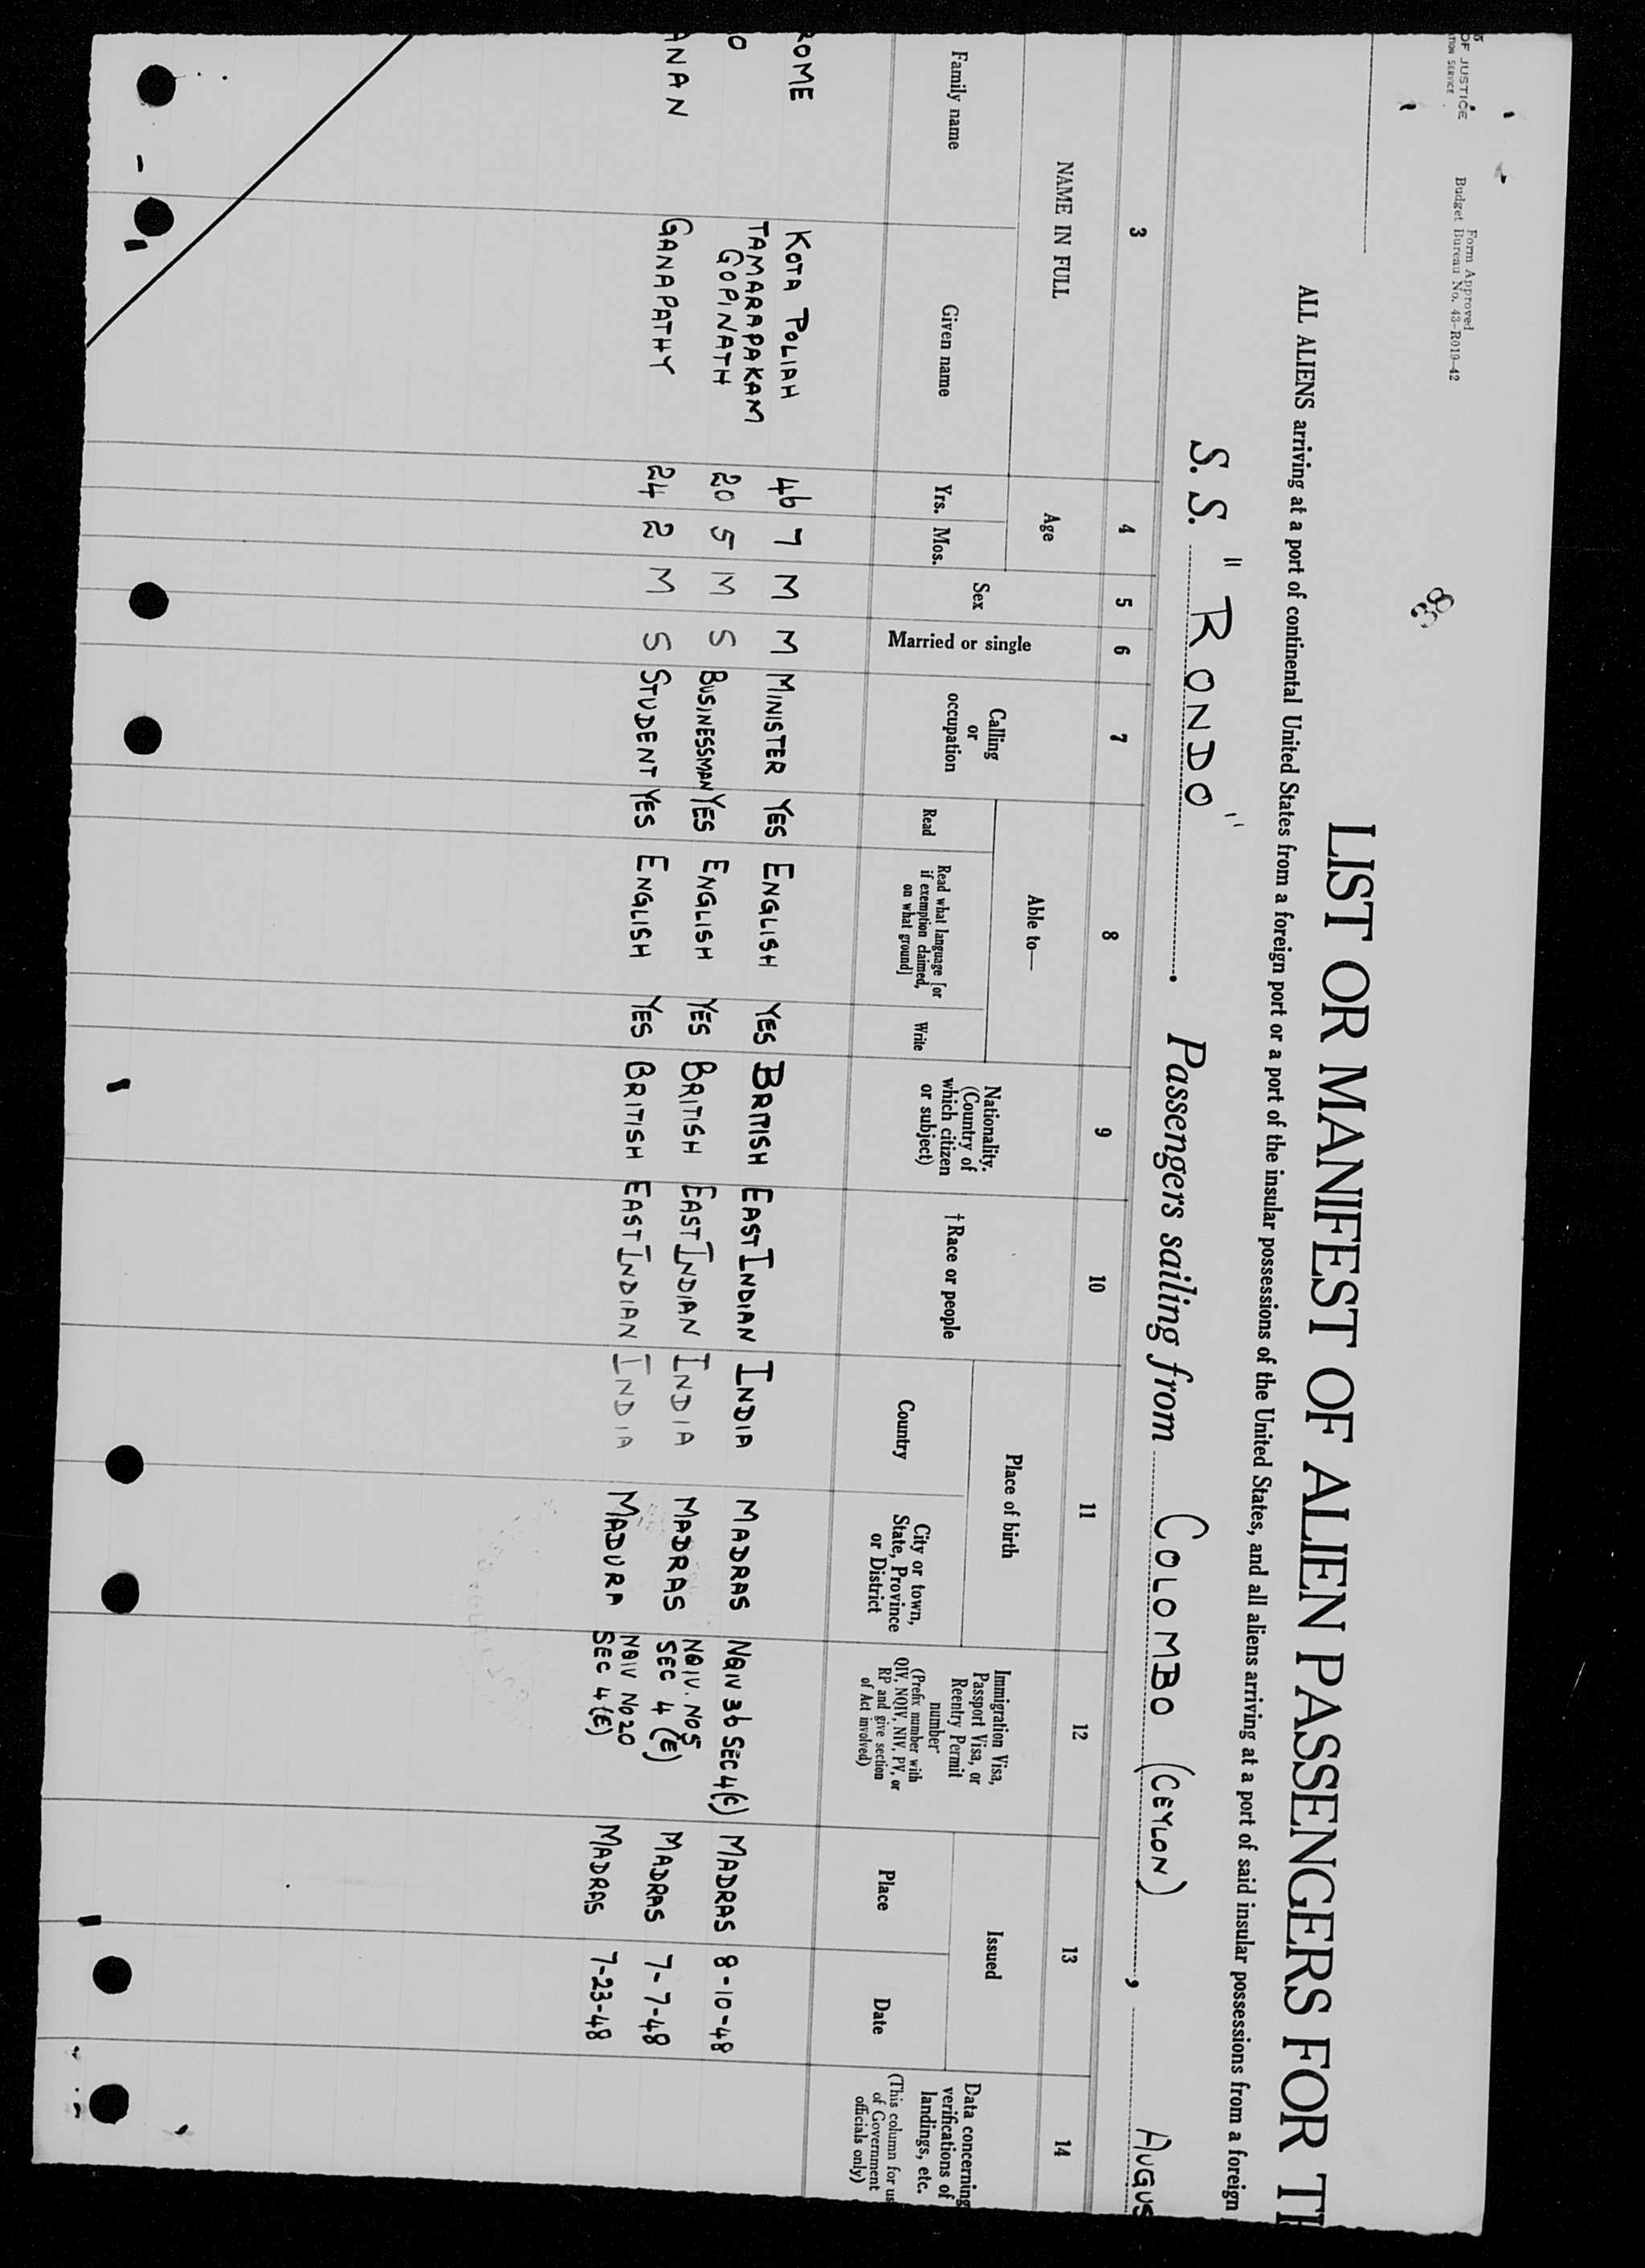 5
OF JUSTICE
TION SERVICE
Form Approved
Budget Bureau No. 43-R019-42
LIST OR MANIFEST OF ALIEN PASSENGERS FOR TH
ALL ALIENS arriving at a port of continental United States from a foreign port or a port of the insular possessions of the United States, and all aliens arriving at a port of said insular possessions from a foreign
S. S. "RONDO" . Passengers sailing from COLOMBO (CEYLON) , AUGUS
3 4 5 6 7 8 9 10 11 12 13 14
NAME IN FULL
Family name
Given name
Age
Yrs. Mos.
Sex
Married or single
Calling
or
occupation
Able to—
Read
Read what language [or
if exemption claimed,
on what ground]
Write
Nationality.
(Country of
which citizen
or subject)
†Race or people
Place of birth
Country
City or town,
State, Province
or District
Immigration Visa,
Passport Visa, or
Reentry Permit
number
(Prefix number with
QIV, NQIV, NIV, PV, or
RP and give section
of Act involved)
Issued
Place
Date
Data concerning
verifications of
landings, etc.
(This column for us
of Government
officials only)
ROME KOTA POLIAH 46 7 M M MINISTER YES ENGLISH YES BRITISH EAST INDIAN INDIA MADRAS NQIV 36 SEC 4(E) MADRAS 8-10-48
TAMARAPAKAM
O GOPINATH 20 5 M S BUSINESSMAN YES ENGLISH YES BRITISH EAST INDIAN INDIA MADRAS NQIV. NO 5 MADRAS 7-7-48
SEC 4 (E)
ANAN GANAPATHY 24 2 M S STUDENT YES ENGLISH YES BRITISH EAST INDIAN INDIA MADURA NQIV NO 20 MADRAS 7-23-48
SEC 4(E)